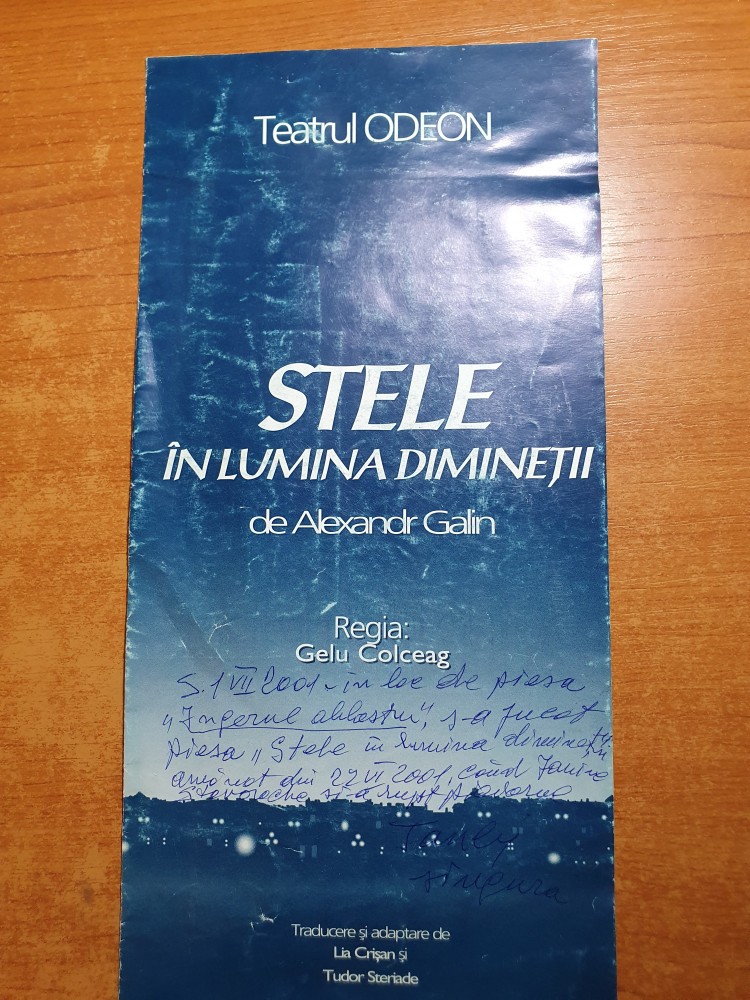 Teatrul ODEON
STELE
ÎN LUMINA DIMINEȚII
de Alexandr Galin
Regia:
Gelu Colceag
S. 1 VII 2001 - în loc de piesa
„Îngerul albastru", s-a jucat
piesa „Stele în lumina dimineții
amânat din 22 VI 2001, când Janine
și-a rupt piciorul
singura
Traducere și adaptare de
Lia Crișan și
Tudor Steriade